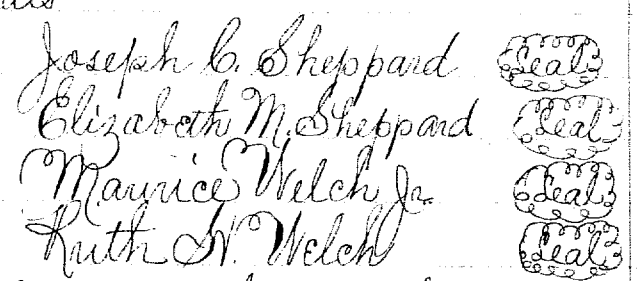 Joseph C. Sheppard Seal
Elizabeth M. Sheppard Seal
Maurice Welch Jr. Seal
Ruth N. Welch Seal